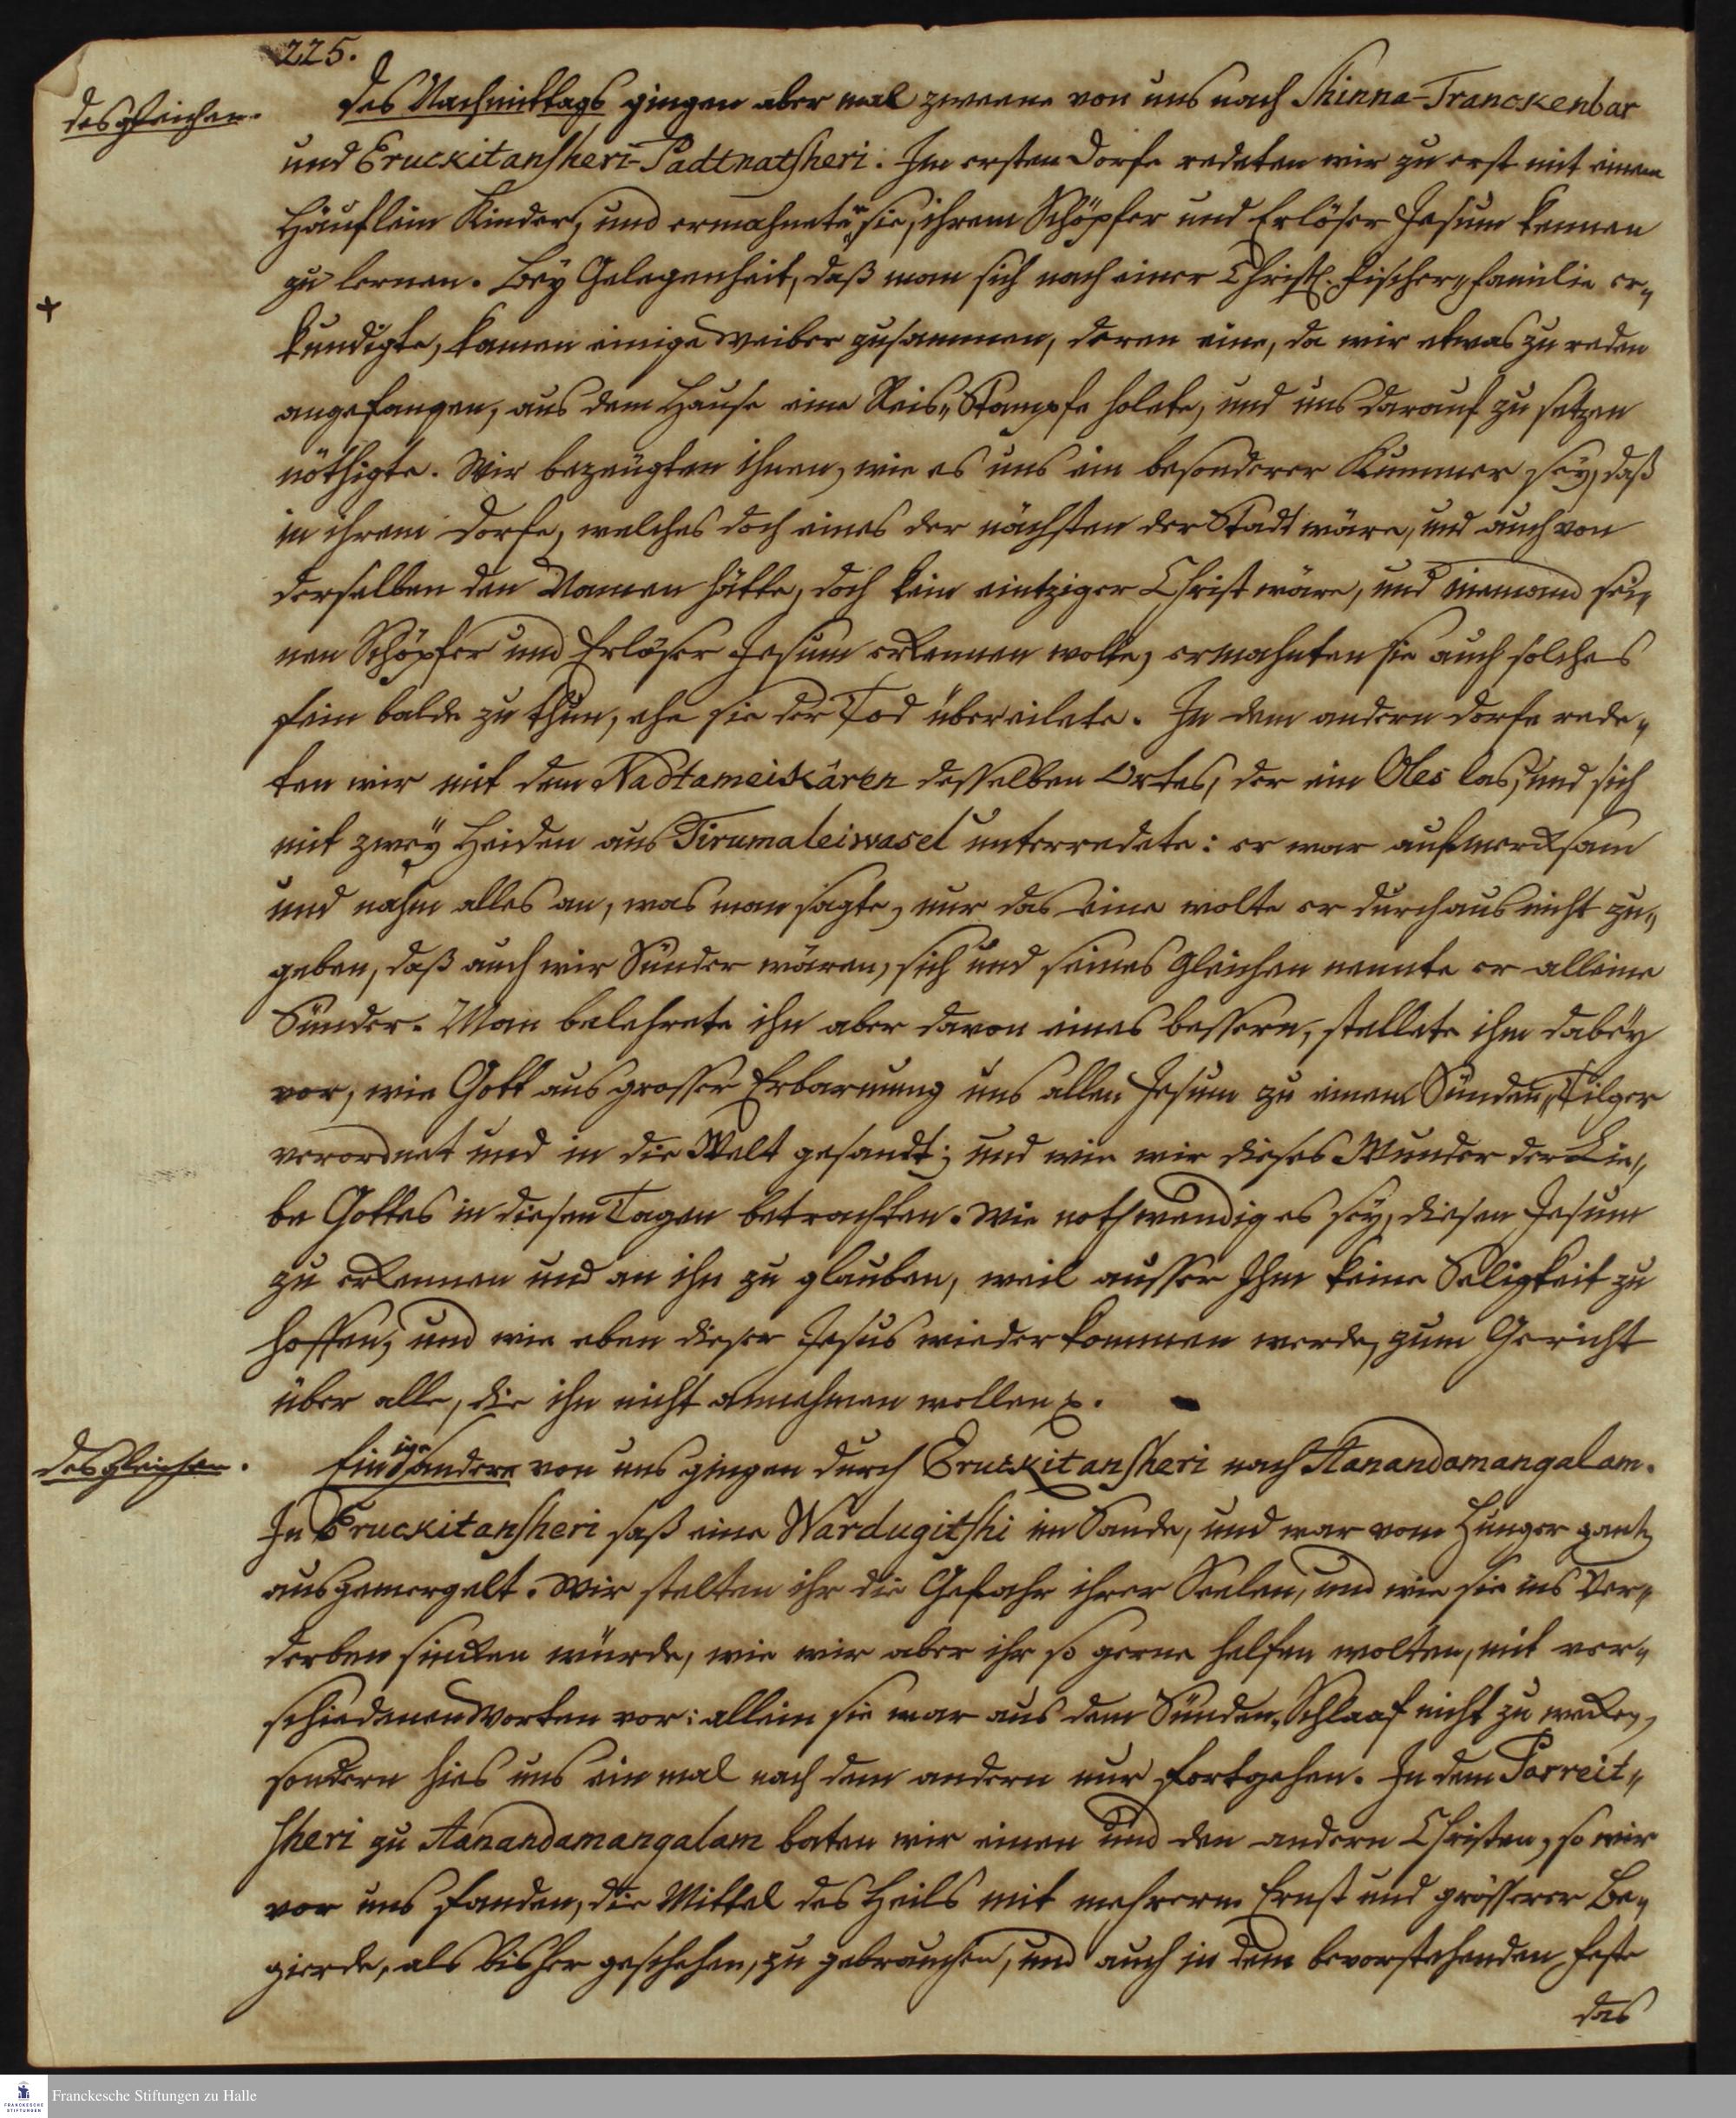 225.
desgleichen.
Des Nachmittags gingen aber mal zweene von uns nach Shinna-Tranckenbar
und Eruckitansheri-Padtnatsheri. Im ersten Dorfe redeten wir zu erst mit einem
Häuflein Kinder, und ermahneten sie, ihrem Schöpfer und Erlöser Jesum kennen
zu lernen. Bey Gelegenheit, daß man sich nach einer Christl. Fischer„familie er„
kundigte, kamen einige Weiber zusammen, deren eine, da wir etwas zu reden
angefangen, aus dem Hause eine Reis„Stampfe holete, und uns darauf zu setzen
nöthigte. Wir bezeugten ihnen, wie es uns ein besonderer Kummer sey, daß
in ihrem Dorfe, welches doch eines der nächsten der Stadt wäre, und auch von
derselben den Namen hätte, doch kein eintziger Christ wäre, und niemand sei„
nen Schöpfer und Erlöser Jesum erkennen wolte, ermahnten sie auch solches
fein balde zu thun, ehe sie der Tod übereilete. In dem andern Dorfe rede„
ten wir mit dem Nadtameikären desselben Ortes, der ein Oles las, und sich
mit zwey Heiden aus Tirumaleiwasel unterredete: er war aufmercksam
und nahm alles an, was man sagte, nur das eine wolte er durchaus nicht zu„
geben, daß auch wir Sünder wären, sich und seines Gleichen nennte er alleine
Sünder. Man belehrete ihn aber davon eines bessern, stellete ihm dabey
vor, wie Gott aus grosser Erbarmung uns allen Jesum zu einem Sünden„Tilger
verordnet und in die Welt gesandt; und wie wir dieses Wunder der Lie„
be Gottes in diesen Tagen betrachten. Wie nothwendig es sey, diesen Jesum
zu erkennen und an ihn zu glauben, weil ausser Ihm keine Seligkeit zu
hoffen, und wie eben dieser Jesus wieder kommen werde, zum Gericht
über alle, die ihn nicht annehmen wollen p.
desgleichen.
Einige andere von uns gingen durch Eruckitansheri nach Aanandamangalam.
In Eruckitansheri saß eine Wardugitshi im Sande, und war vom Hunger gantz
ausgemergelt. Wir stelten ihr die Gefahr ihrer Seelen, und wie sie ins Ver„
derben sincken würde, wie wir aber ihr so gerne helfen wolten, mit ver„
schiedenen Worten vor: allein sie war aus dem Sünden„Schlaaf nicht zu wecken,
sondern hies uns ein mal nach dem andern nur fortgehen. In dem Parreit„
sheri zu Aanandamangalam baten wir einen und den andern Christen, so wir
vor uns fanden, die Mittel des Heils mit mehrerm Ernst und grösserer Be„
gierde, als bisher geschehen, zu gebrauchen, und auch in dem bevorstehenden Feste
das
Franckesche Stiftungen zu Halle
FRANCKESCHE
STIFTUNGEN